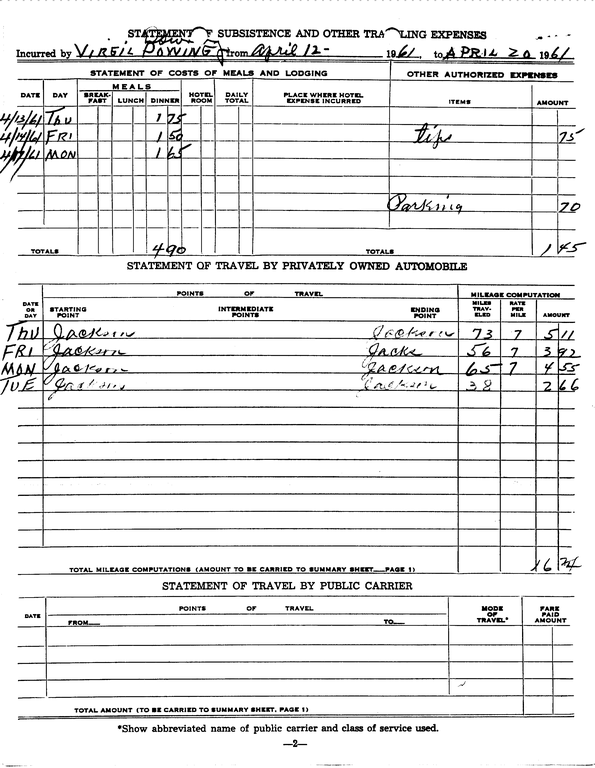 STATEMENT OF SUBSISTENCE AND OTHER TRA LING EXPENSES
Incurred by VIRGIL DOWNING from April 12- 1961, to APRIL 20 1961
STATEMENT OF COSTS OF MEALS AND LODGING OTHER AUTHORIZED EXPENSES
MEALS
DATE DAY BREAK-FAST LUNCH DINNER HOTEL ROOM DAILY TOTAL PLACE WHERE HOTEL EXPENSE INCURRED ITEMS AMOUNT
4/13/61 THU 1 75
4/14/61 FRI 1 50 tips 75
4/17/61 MON 1 65
Parking 70
TOTALS 4 90 TOTALS 1 45
STATEMENT OF TRAVEL BY PRIVATELY OWNED AUTOMOBILE
DATE OR DAY POINTS OF TRAVEL MILEAGE COMPUTATION
STARTING POINT INTERMEDIATE POINTS ENDING POINT MILES TRAV-ELED RATE PER MILE AMOUNT
THU Jackson Jackson 73 7 5 11
FRI Jackson Jacks 56 7 3 92
MON Jackson Jackson 65 7 4 55
TUE Jackson Jackson 38 2 66
TOTAL MILEAGE COMPUTATIONS (AMOUNT TO BE CARRIED TO SUMMARY SHEET PAGE 1) 16 24
STATEMENT OF TRAVEL BY PUBLIC CARRIER
DATE POINTS OF TRAVEL MODE OF TRAVEL* FARE PAID AMOUNT
FROM TO
TOTAL AMOUNT (TO BE CARRIED TO SUMMARY SHEET, PAGE 1)
*Show abbreviated name of public carrier and class of service used.
—2—